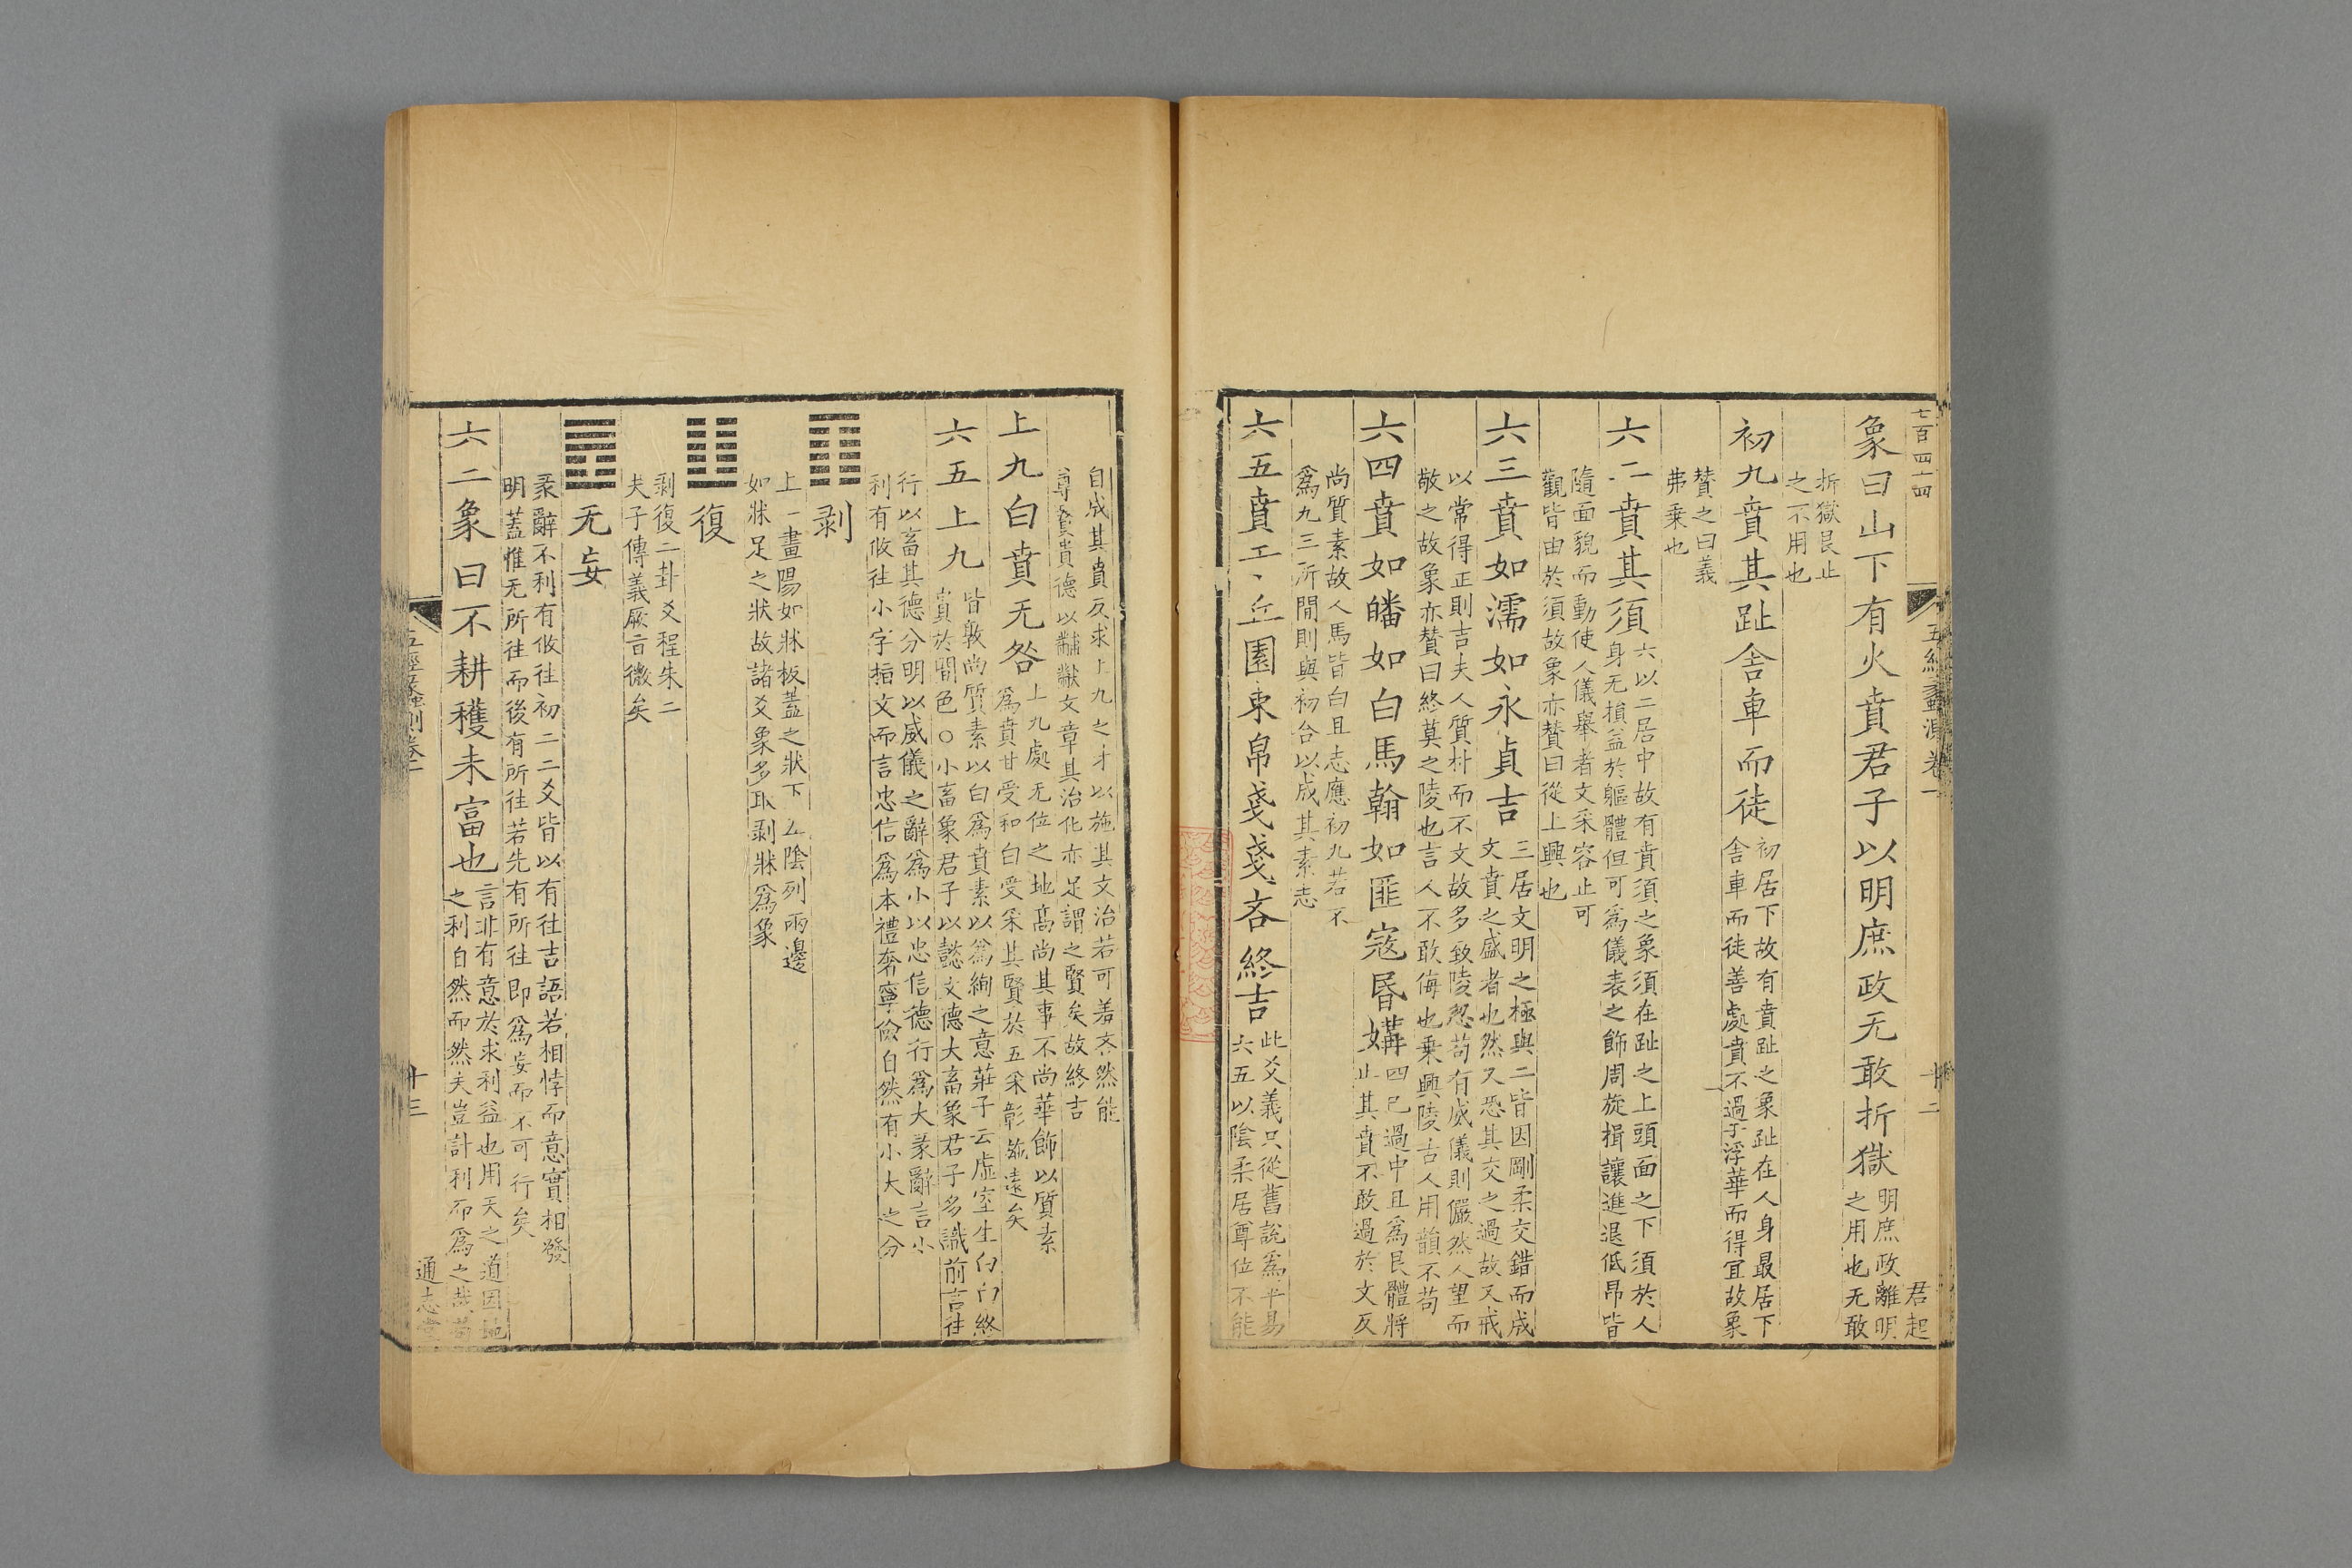 七百四十四
五經蠡測卷一
十二
君起
象曰山下有火賁君子以明庶政无敢折獄明庶政離明
之用也无敢
折獄艮止
之不用也
初九賁其趾舍車而徒初居下故有賁趾之象趾在人身最居下
舍車而徒善處賁不過于浮華而得宜故象
賛之曰義
弗乗也
六二賁其須六以二居中故有賁須之象須在趾之上頭面之下須於人
身无損益於軀體但可爲儀表之飾周旋揖讓進退低昂皆
隨面貌而動使人儀舉者文采容止可
觀皆由於須故象亦賛曰從上興也
六三賁如濡如永貞吉三居文明之極與二皆因剛柔交錯而成
文賁之盛者也然又恐其交之過故又戒
以常得正則吉夫人質朴而不文故多致陵忽苟有威儀則儼然人望而
敬之故象亦賛曰終莫之陵也言人不敢侮也乗興陵古人用韻不苟
六四賁如皤如白馬翰如匪寇昬媾四已過中且爲艮體將
止其賁不敢過於文反
尚質素故人馬皆白且志應初九若不
爲九三所間則與初合以成其素志
六五賁于丘園束帛戔戔吝終吉此爻義只從舊說爲平易
六五以陰柔居尊位不能
自成其賁反求上九之才以施其文治若可羞吝然能
尊賢貴德以黼黻文章其治化亦足謂之賢矣故終吉
上九白賁无咎上九處无位之地髙尚其事不尚華飾以質素
爲賁甘受和白受采其賢於五采彰施逺矣
六五上九皆敦尚質素以白爲賁素以爲絢之意莊子云虛室生白白終
賁於間色○小畜象君子以懿文德大畜象君子多識前言往
行以畜其德分明以威儀之辭爲小以忠信德行爲大彖辭言小
利有攸往小字指文而言忠信爲本禮奢寧儉自然有小大之分
剥
上一畫陽如牀板葢之狀下五陰列兩邊
如牀足之狀故諸爻象多取剥牀爲象
復
剥復二卦爻程朱二
夫子傳義厥旨微矣
无妄
彖辭不利有攸往初二二爻皆以有往吉語若相悖而意實相發
明葢惟无所往而後有所往若先有所往即爲妄而不可行矣
六二象曰不耕穫未富也言非有意於求利益也用天之道因地
之利自然而然夫豈計利而爲之哉
五經蠡測卷一
十三
通志堂